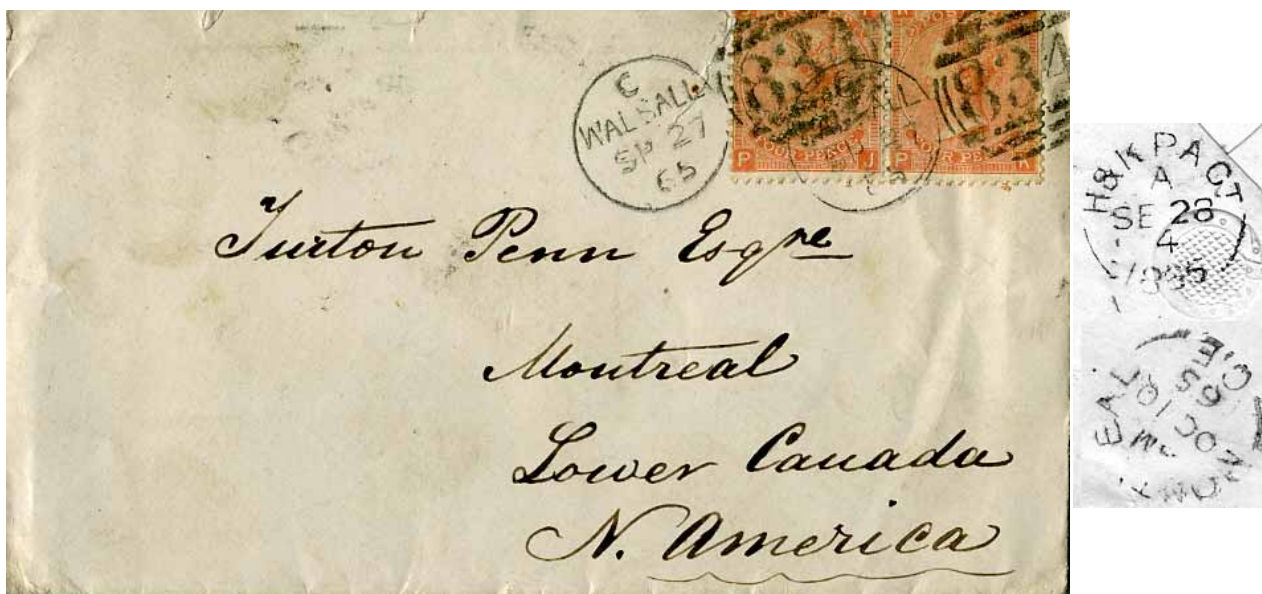 C
WALSALL
SP 27
65
83
83
FOUR PENCE
P J
P K
Turton Penn Esqre
Montreal
Lower Canada
N. America
H&K PACT
A
SE 28
4
1865
MONTREAL
OC 10
65
C.E.